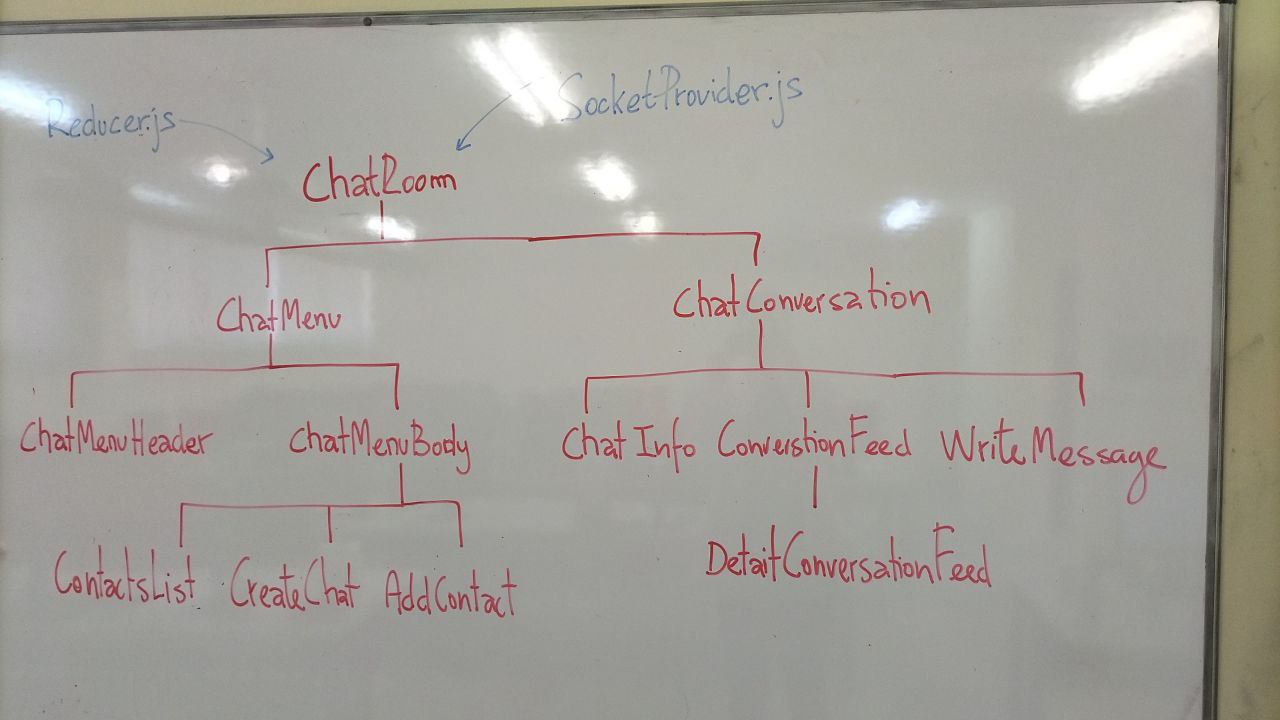 Reducer.js
SocketProvider.js
ChatRoom
ChatMenu
ChatConversation
ChatMenuHeader
ChatMenuBody
ChatInfo
ConverstionFeed
WriteMessage
ContactsList
CreateChat
AddContact
DetaitConversationFeed